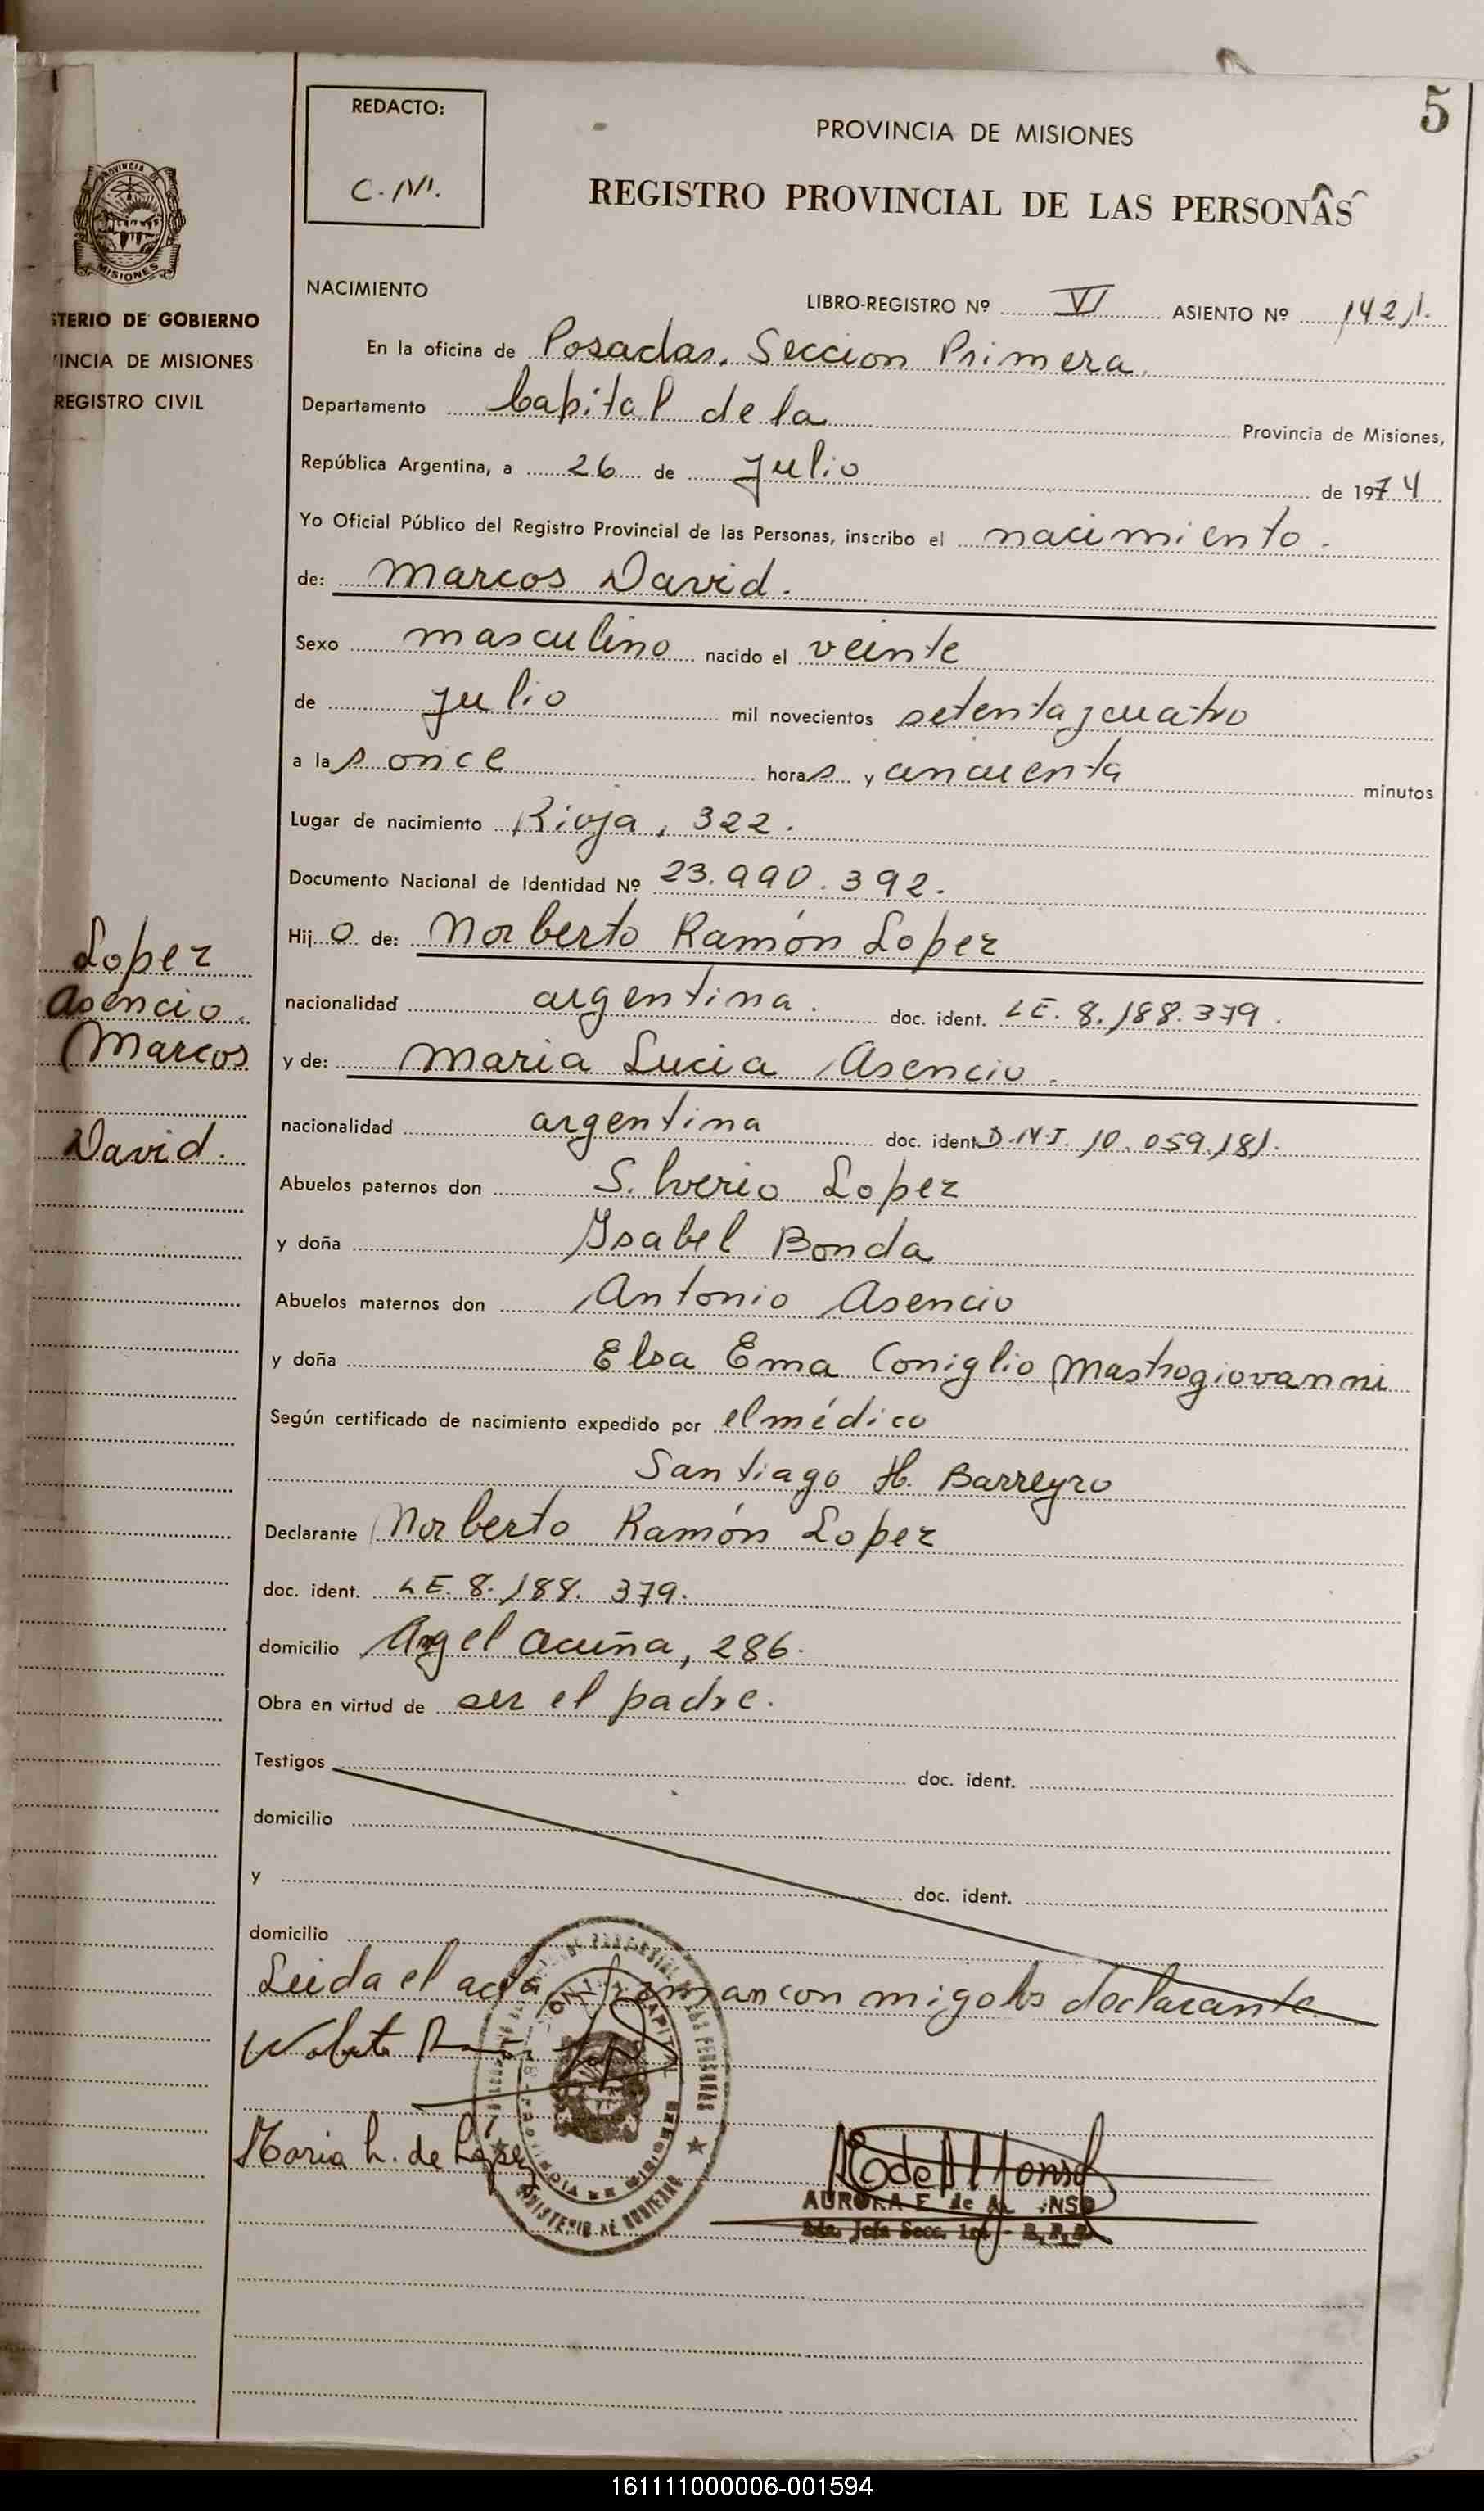 5
REDACTO:
C.M.
PROVINCIA DE MISIONES
REGISTRO PROVINCIAL DE LAS PERSONAS
PROVINCIA DE
MISIONES
STERIO DE GOBIERNO
INCIA DE MISIONES
REGISTRO CIVIL
NACIMIENTO LIBRO-REGISTRO Nº VI ASIENTO Nº 1421.
En la oficina de Posadas. Seccion Primera.
Departamento Capital de la Provincia de Misiones,
República Argentina, a 26 de Julio de 1974
Yo Oficial Público del Registro Provincial de las Personas, inscribo el nacimiento.
de: Marcos David.
Sexo masculino nacido el veinte
de Julio mil novecientos setenta y cuatro
a las once horas y cincuenta minutos
Lugar de nacimiento Rioja, 322.
Documento Nacional de Identidad Nº 23.990.392.
Hijo de: Norberto Ramón Lopez
nacionalidad argentina. doc. ident. LE. 8.188.379.
y de: Maria Lucia Asencio.
nacionalidad argentina doc. ident. D.N.I. 10.059.181.
Lopez
Asencio.
Marcos
David.
Abuelos paternos don Silverio Lopez
y doña Ysabel Bonda
Abuelos maternos don Antonio Asencio
y doña Elsa Ema Coniglio Mastrogiovanni
Según certificado de nacimiento expedido por el médico
Santiago H. Barreyro
Declarante Norberto Ramón Lopez
doc. ident. LE. 8.188.379.
domicilio Angel Acuña, 286.
Obra en virtud de ser el padre.
Testigos doc. ident.
domicilio
y doc. ident.
domicilio
Leida el acta firman con migo los declarante.
Norberto Ramón
Maria L. de López
AURORA E de AL NSO
Jefa Secc. 1ra - R.P.P.
161111000006-001594